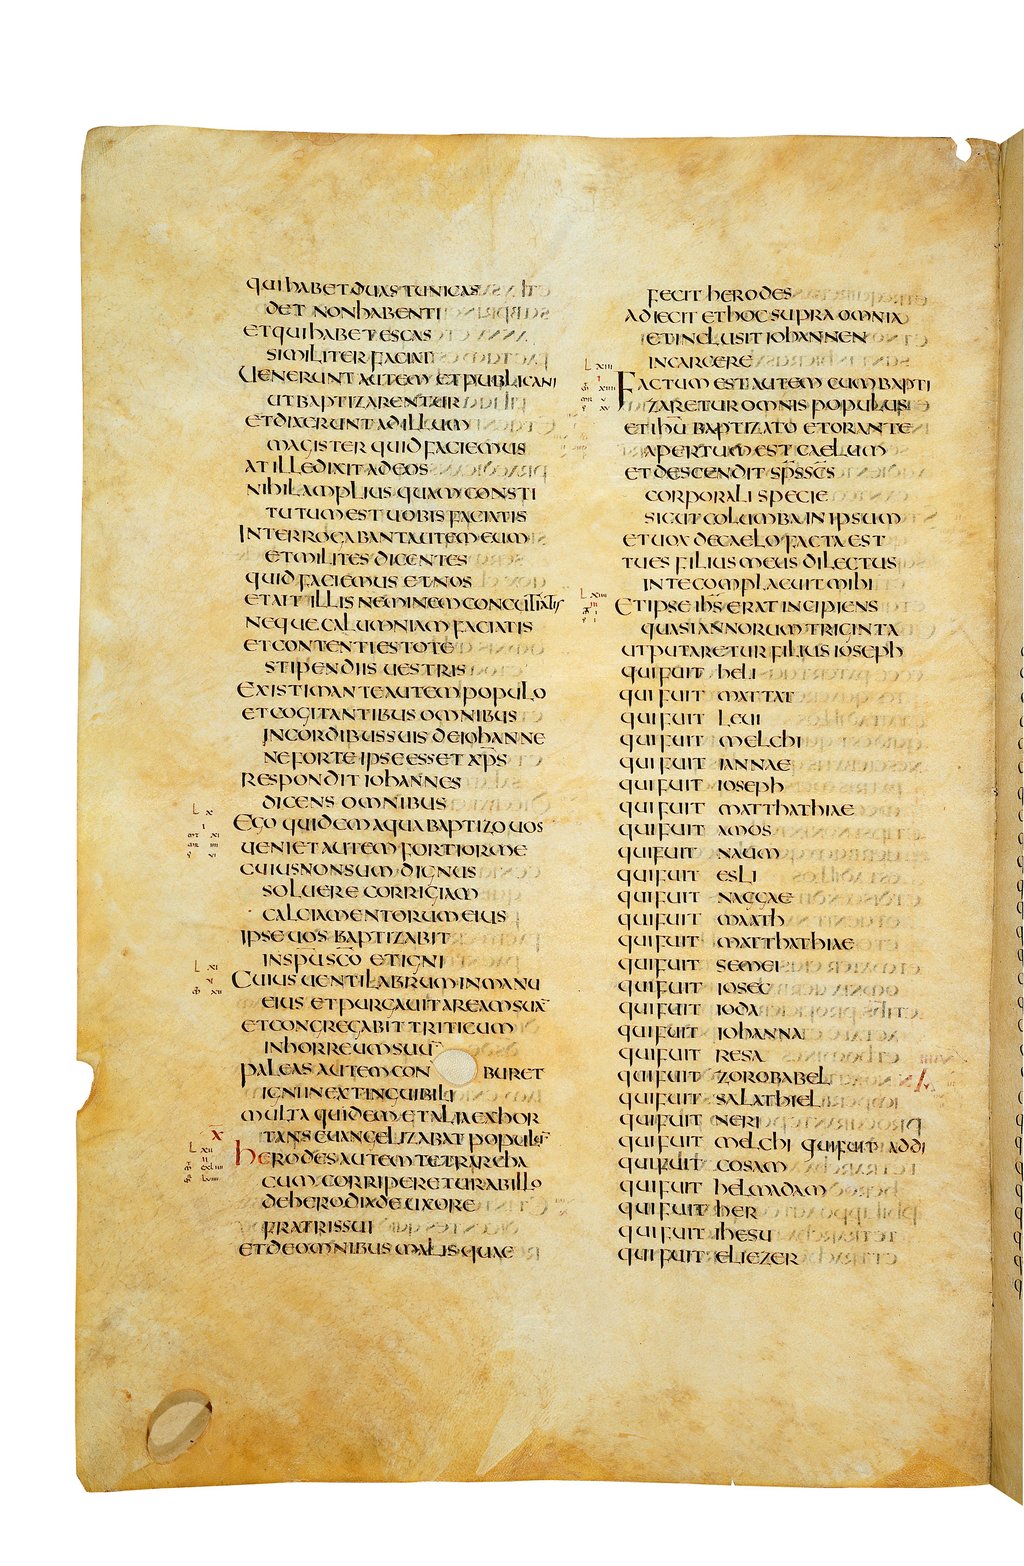 qui habet duas tunicas
det non habenti
et qui habet escas
similiter faciat
Uenerunt autem et publicani
ut baptizarentur
et dixerunt ad illum
magister quid faciemus
at ille dixit ad eos
nihil amplius quam consti
tutum est uobis faciatis
Interrogabant autem eum
et milites dicentes
quid faciemus et nos
et ait illis neminem concutiatis
neque calumniam faciatis
et contenti estote
stipendiis uestris
Existimante autem populo
et cogitantibus omnibus
in cordibus suis de iohanne
ne forte ipse esset xp̄s
respondit iohannes
dicens omnibus
L x
Ego quidem aqua baptizo uos
ueniet autem fortior me
cuius non sum dignus
soluere corrigiam
calciamentorum eius
ipse uos baptizabit
in sp̄u sc̄o et igni
L xi
Cuius uentilabrum in manu
eius et purgauit aream suā
et congregabit triticum
in horreum suū
paleas autem con buret
igni inextinguibili
multa quidem et alia exhor
x
tans euangelizabat populū
L xii
herodes autem tetrarcha
cum corriperetur ab illo
de herodiade uxore
fratris sui
et de omnibus malis quae
fecit herodes
adiecit et hoc supra omnia
et inclusit iohannen
in carcere
L xiii
Factum est autem cum bapti
zaretur omnis populus
et ihū baptizato et orante
apertum est caelum
et descendit sp̄s sc̄s
corporali specie
sicut columba in ipsum
et uox de caelo facta est
tu es filius meus dilectus
in te complacuit mihi
L xiiii
Et ipse ihs̄ erat incipiens
quasi annorum triginta
ut putaretur filius ioseph
qui fuit heli
qui fuit mattat
qui fuit leui
qui fuit melchi
qui fuit iannae
qui fuit ioseph
qui fuit matthathiae
qui fuit amos
qui fuit naum
qui fuit esli
qui fuit naggae
qui fuit maath
qui fuit matthathiae
qui fuit semei
qui fuit iosec
qui fuit ioda
qui fuit iohanna
qui fuit resa
qui fuit zorobabel
qui fuit salathiel
qui fuit neri
qui fuit melchi qui fuit addi
qui fuit cosam
qui fuit helmadam
qui fuit her
qui fuit ihesu
qui fuit eliezer